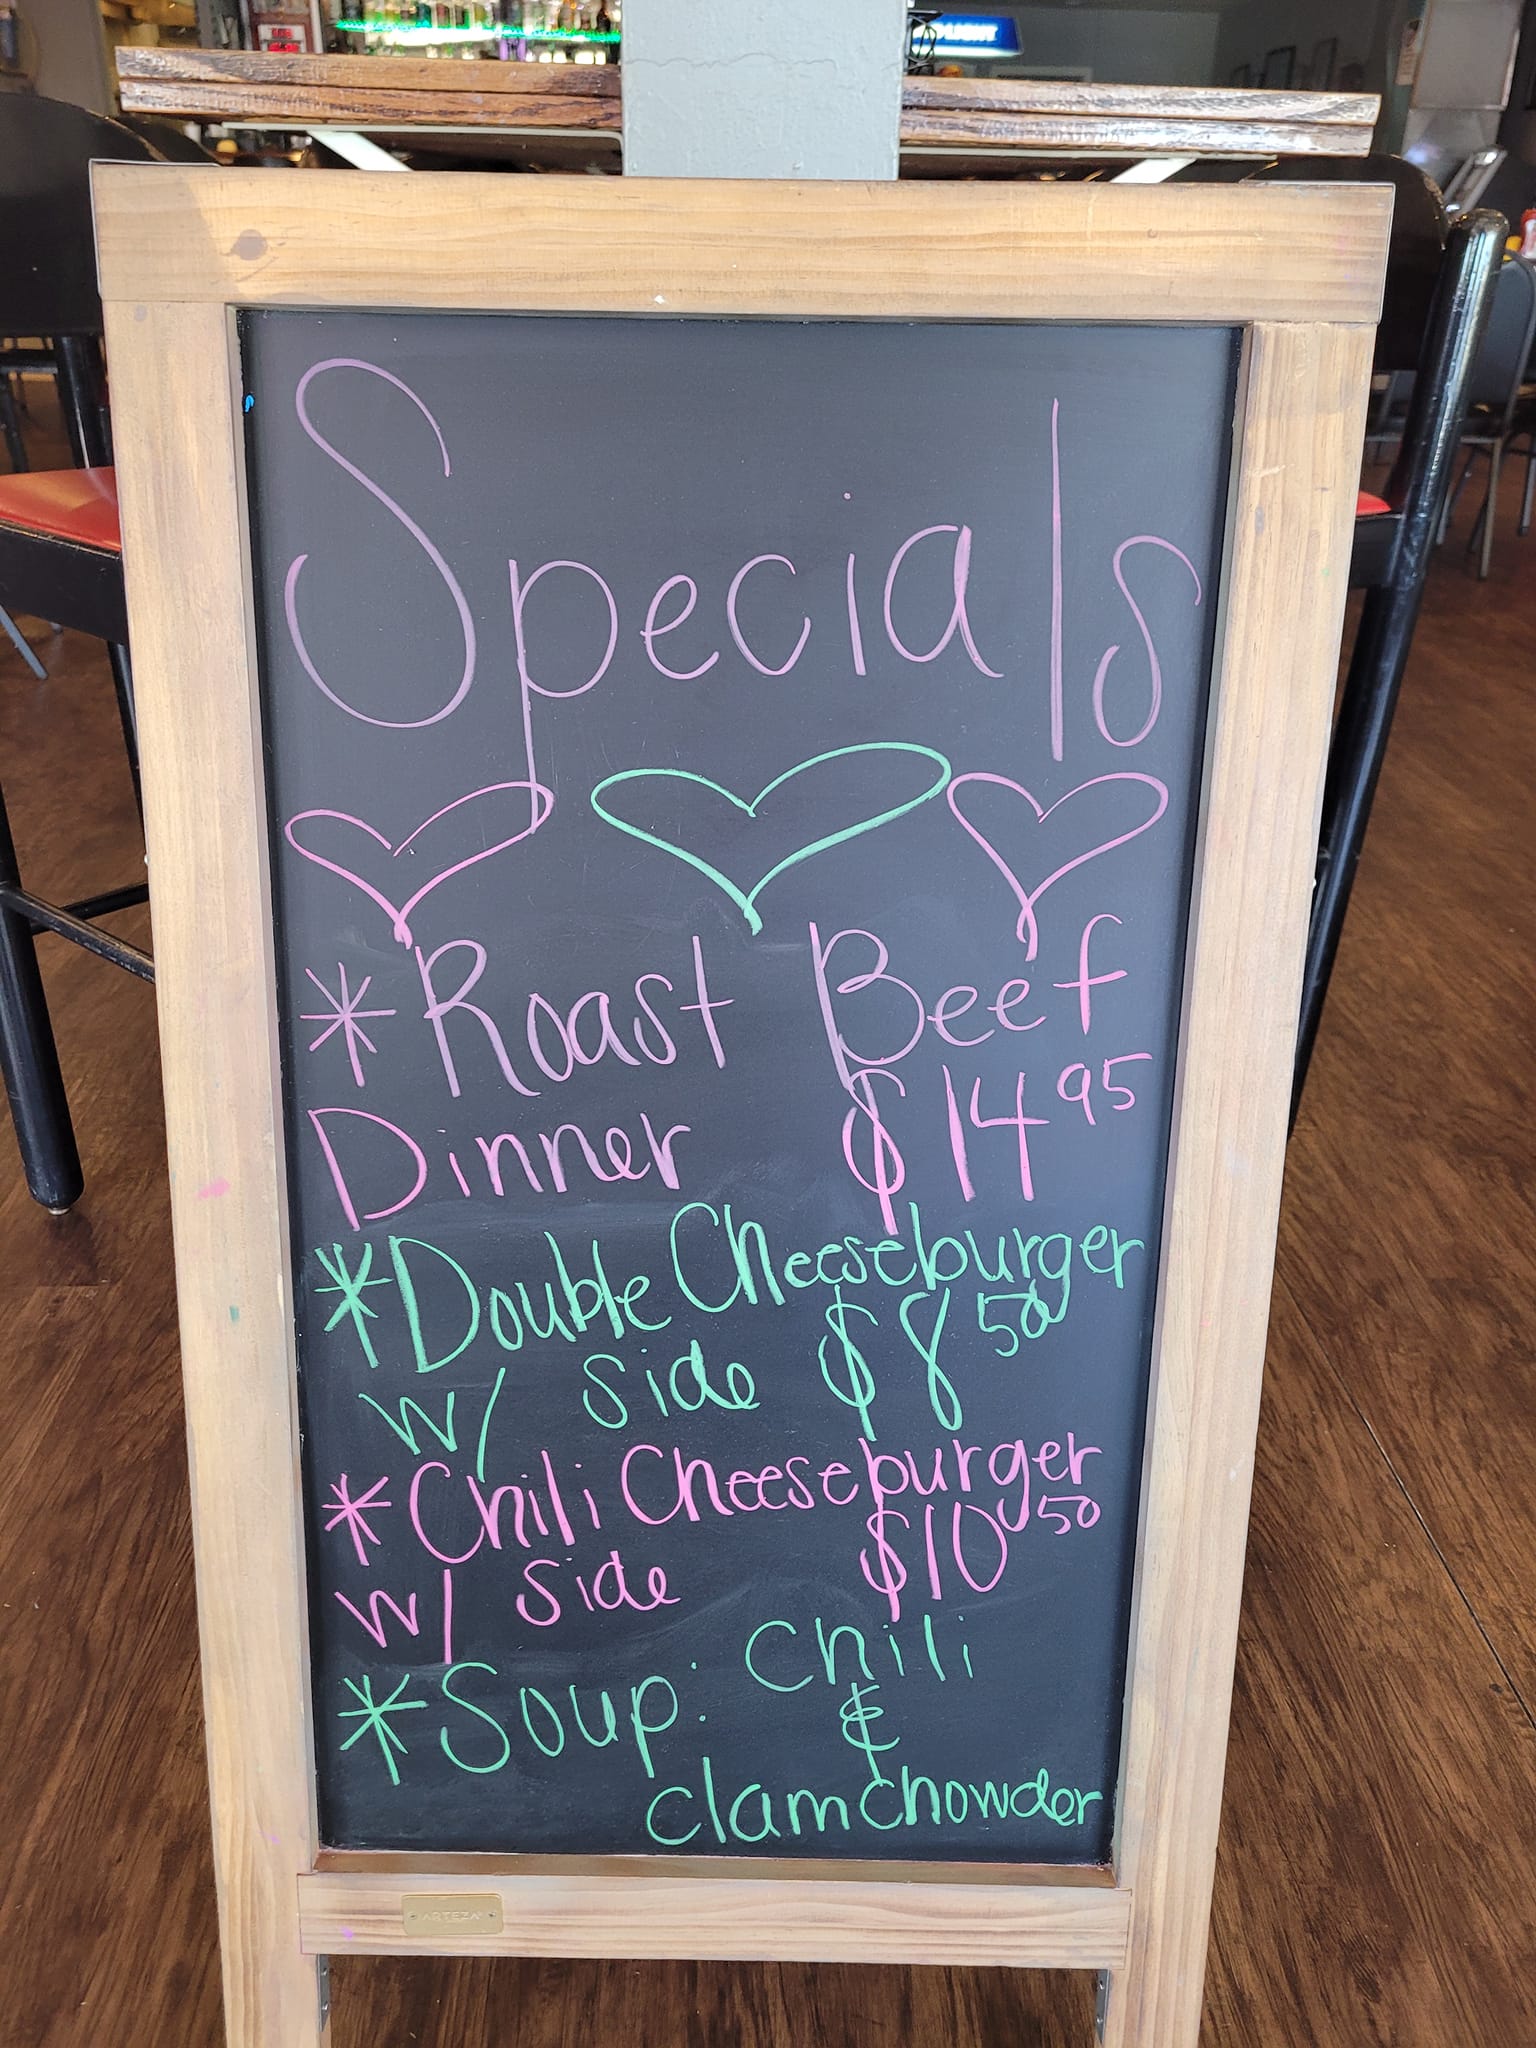 Specials
*Roast Beef
Dinner $14 95
*Double Cheeseburger
w/ side $8 50
*Chili Cheeseburger
w/ side $10 50
*Soup: Chili
&
clam chowder
ARTEZA